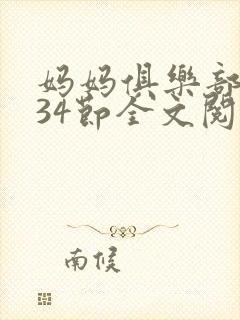 妈妈俱樂部
34節全文閱
南候